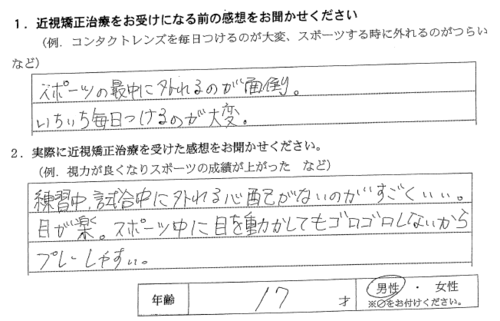 1．近視矯正治療をお受けになる前の感想をお聞かせください
（例．コンタクトレンズを毎日つけるのが大変、スポーツする時に外れるのがつらい
など）
スポーツの最中に外れるのが面倒。
いちいち毎日つけるのが大変。
2．実際に近視矯正治療を受けた感想をお聞かせください。
（例．視力が良くなりスポーツの成績が上がった　など）
練習中、試合中に外れる心配がないのがすごくいい。
目が楽。スポーツ中に目を動かしてもゴロゴロしないから
プレーしやすい。
年齢　17　才　男性　・　女性
※○をお付けください。